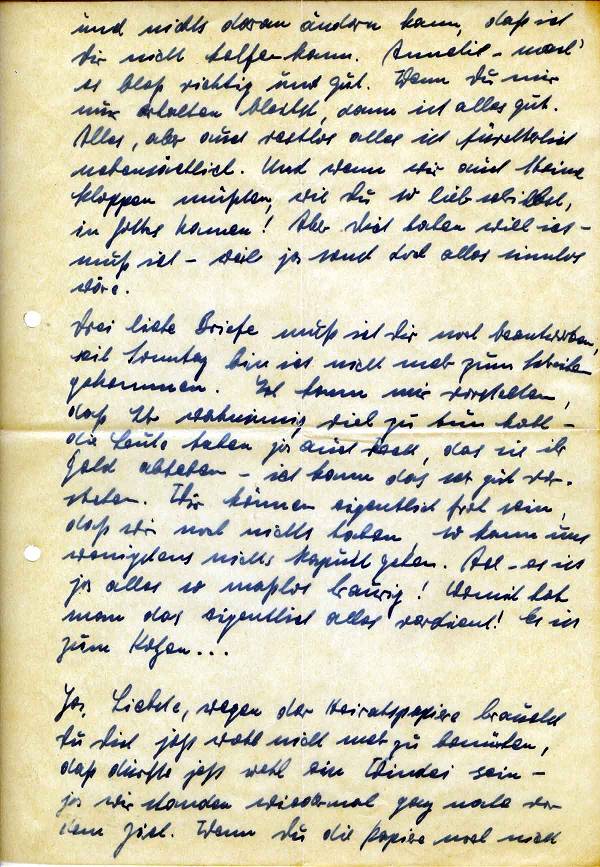 und nichts daran ändern kann, daß ich
dir nicht helfen kann. Annelie – mach'
es bloß richtig und gut. Wenn du mir
nur erhalten bleibst, dann ist alles gut.
Alles, aber auch restlos alles ist fürchterlich
nebensächlich. Und wenn wir auch Steine
kloppen müßten, wie du so lieb schreibst,
in Gottes Namen! Aber dich haben will ich –
muß ich – weil ja sonst doch alles sinnlos
wäre.
Drei liebe Briefe muß ich dir noch beantworten,
seit Sonntag bin ich nicht mehr zum Schreiben
gekommen. Ich kann mir vorstellen,
daß Ihr wahnsinnig viel zu tun habt –
die Leute haben ja auch Recht, das sie ihr
Geld abheben – ich kann das sehr gut ver-
stehen. Wir können eigentlich froh sein,
daß wir noch nichts haben, so kann uns
wenigstens nichts kaputt gehen. Ach – es ist
ja alles so maßlos traurig! Womit hat
man das eigentlich alles verdient! Es ist
zum Kotzen...
Ja, Liebste, wegen der Heiratspapiere brauchst
du dich jetzt wohl nicht mehr zu bemühen,
daß dürfte jetzt wohl ein Windei sein –
ja wir standen wiedermal ganz nahe vor
dem Ziel. Wenn du die Papiere noch nicht